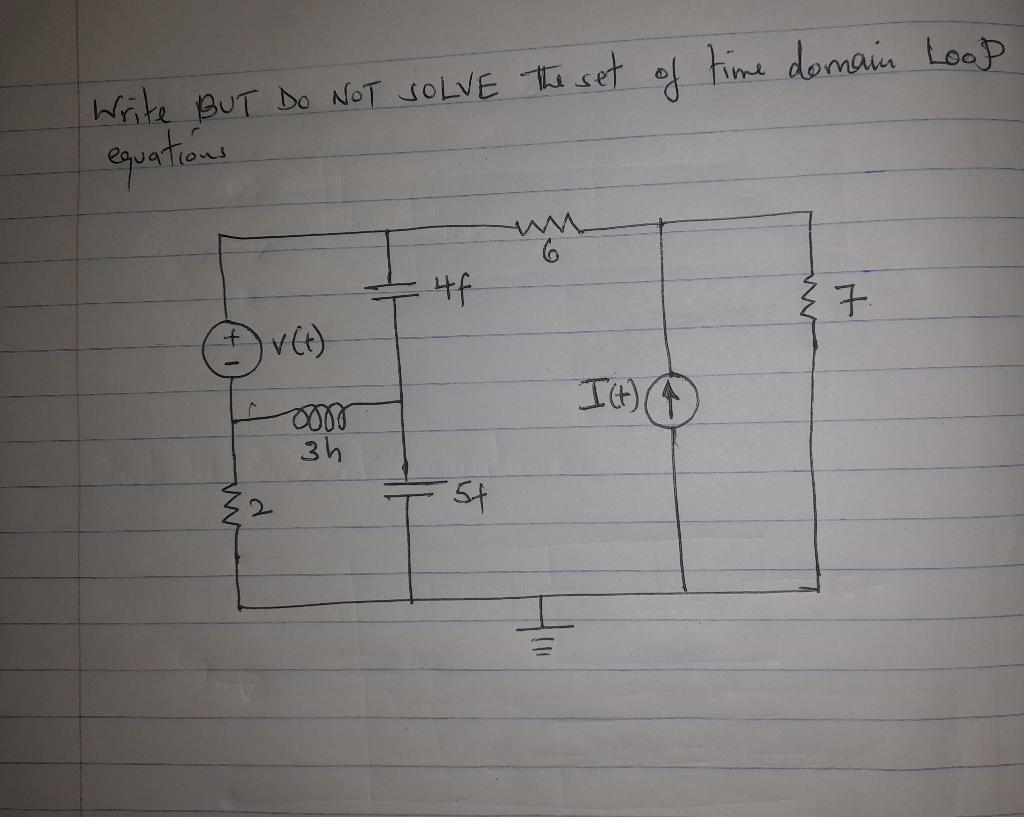 Write BUT DO NOT SOLVE the set of time domain LOOP
equations
6
4f
7
+
-
v(t)
I(t)
3h
2
5f